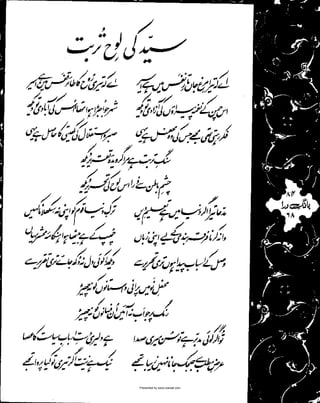 سیّد کی لوحِ تربت
اے کہ تیرا مرغِ جاں تارِ نفس میں ہے اسیر
اے کہ تیری روح کا طائر قفس میں ہے اسیر
اس چمن کے نغمہ پیراؤں کی آزادی تو دیکھ
شہر جو اجڑا ہوا تھا اس کی آبادی تو دیکھ
فکر رہتی تھی مجھے جس کی وہ محفل ہے یہی
صبر و استقلال کی کھیتی کا حاصل ہے یہی
سنگِ تربت ہے مرا گرویدۂ تقریر دیکھ
چشمِ باطن سے ذرا اس لوح کی تحریر دیکھ
مدعا تیرا اگر دنیا میں ہے تعلیمِ دیں
ترکِ دنیا قوم کو اپنی نہ سکھلانا کہیں
وا نہ کرنا فرقہ بندی کے لیے اپنی زباں
چھپ کے ہے بیٹھا ہوا ہنگامۂ محشر یہاں
وصل کے اسباب پیدا ہوں تری تحریر سے
دیکھ کوئی دل نہ دکھ جائے تری تقریر سے
محفلِ نو میں پرانی داستانوں کو نہ چھیڑ
رنگ پر جو اب نہ آئیں ان فسانوں کو نہ چھیڑ
تو اگر کوئی مدبر ہے تو سن میری صدا
ہے دلیری دستِ اربابِ سیاست کا عصا
عرضِ مطلب سے جھجک جانا نہیں زیبا تجھے
نیک ہے نیت اگر تیری تو کیا پروا تجھے
۸۳
بانگِ درا
۶۸